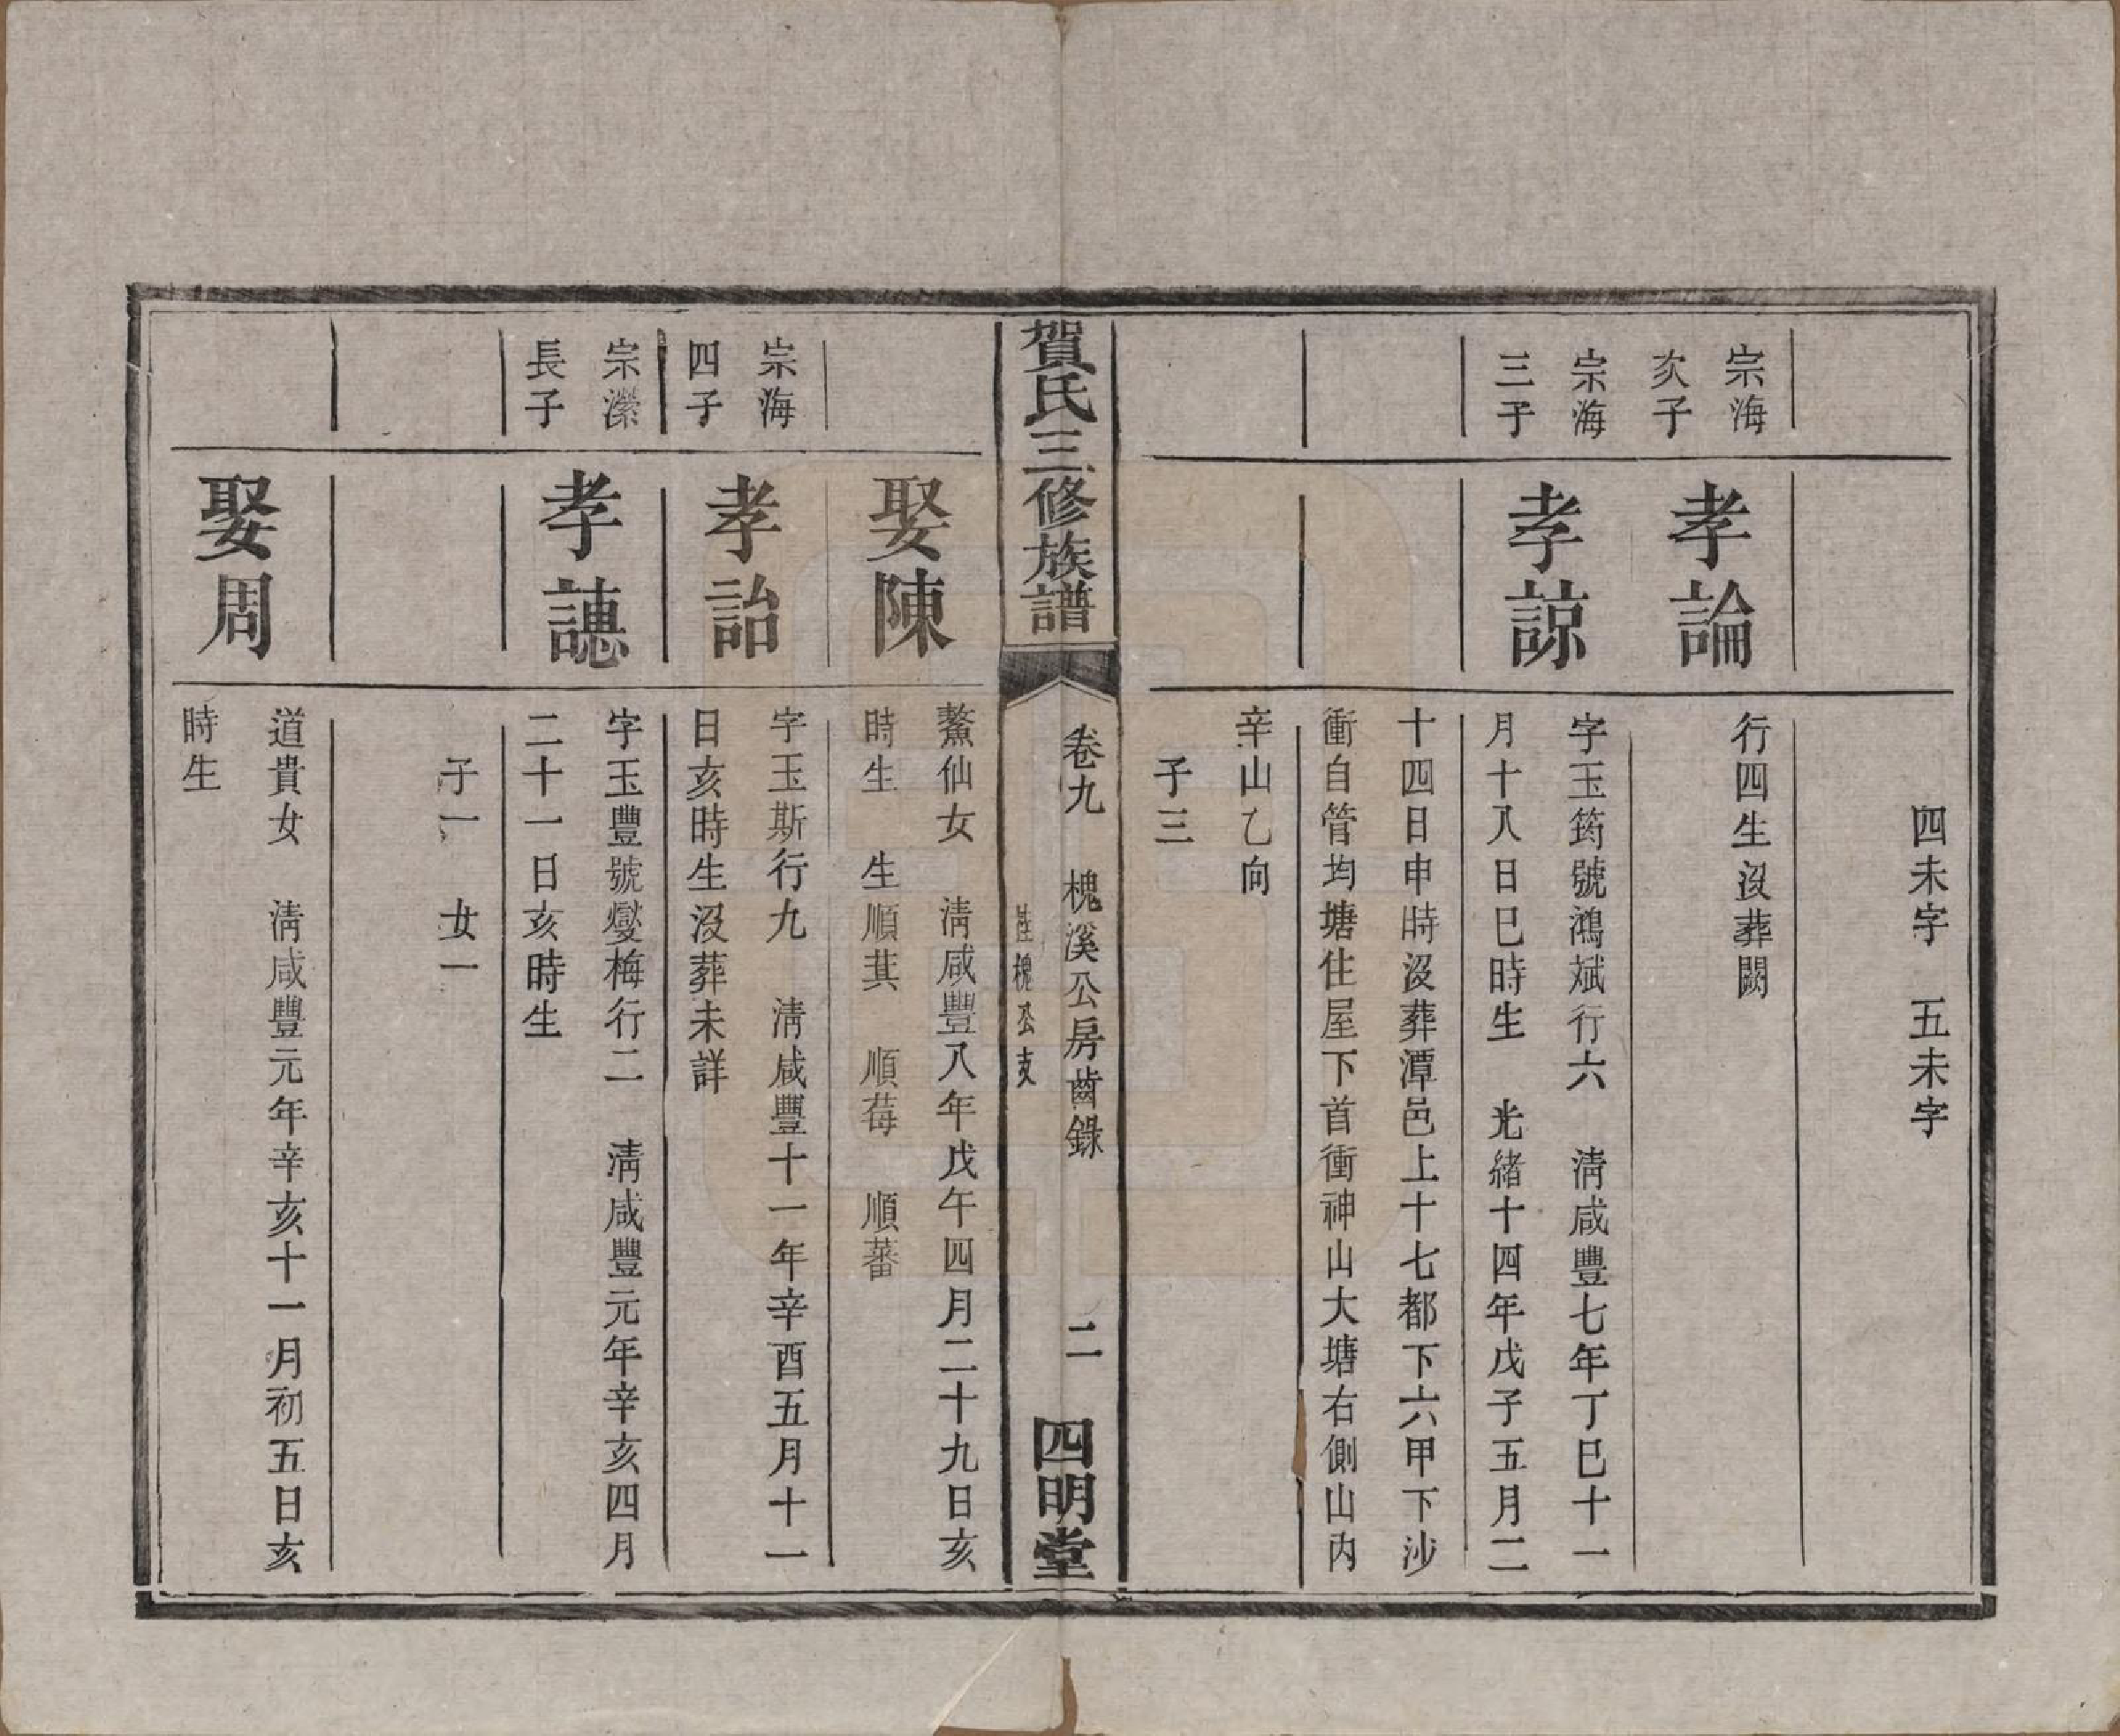 四未字　五未字
宗海
次子
孝論
行四生沒葬闕
宗海
三子
孝諒
字玉筠號鴻斌行六　清咸豐七年丁巳十一
月十八日巳時生　光緒十四年戊子五月二
十四日申時沒葬潭邑上十七都下六甲下沙
衝自管均塘住屋下首衝神山大塘右側山內
辛山乙向
子三
賀氏三修族譜
卷九　槐溪公房齒錄
槐公支
二
四明堂
娶陳
鰲仙女　清咸豐八年戊午四月二十九日亥
時生　生順萁　順莓　順蕃
宗海
四子
孝詒
字玉斯行九　清咸豐十一年辛酉五月十一
日亥時生沒葬未詳
宗瀠
長子
孝譓
字玉豐號燮梅行二　清咸豐元年辛亥四月
二十一日亥時生
子一　女一
娶周
道貴女　清咸豐元年辛亥十一月初五日亥
時生